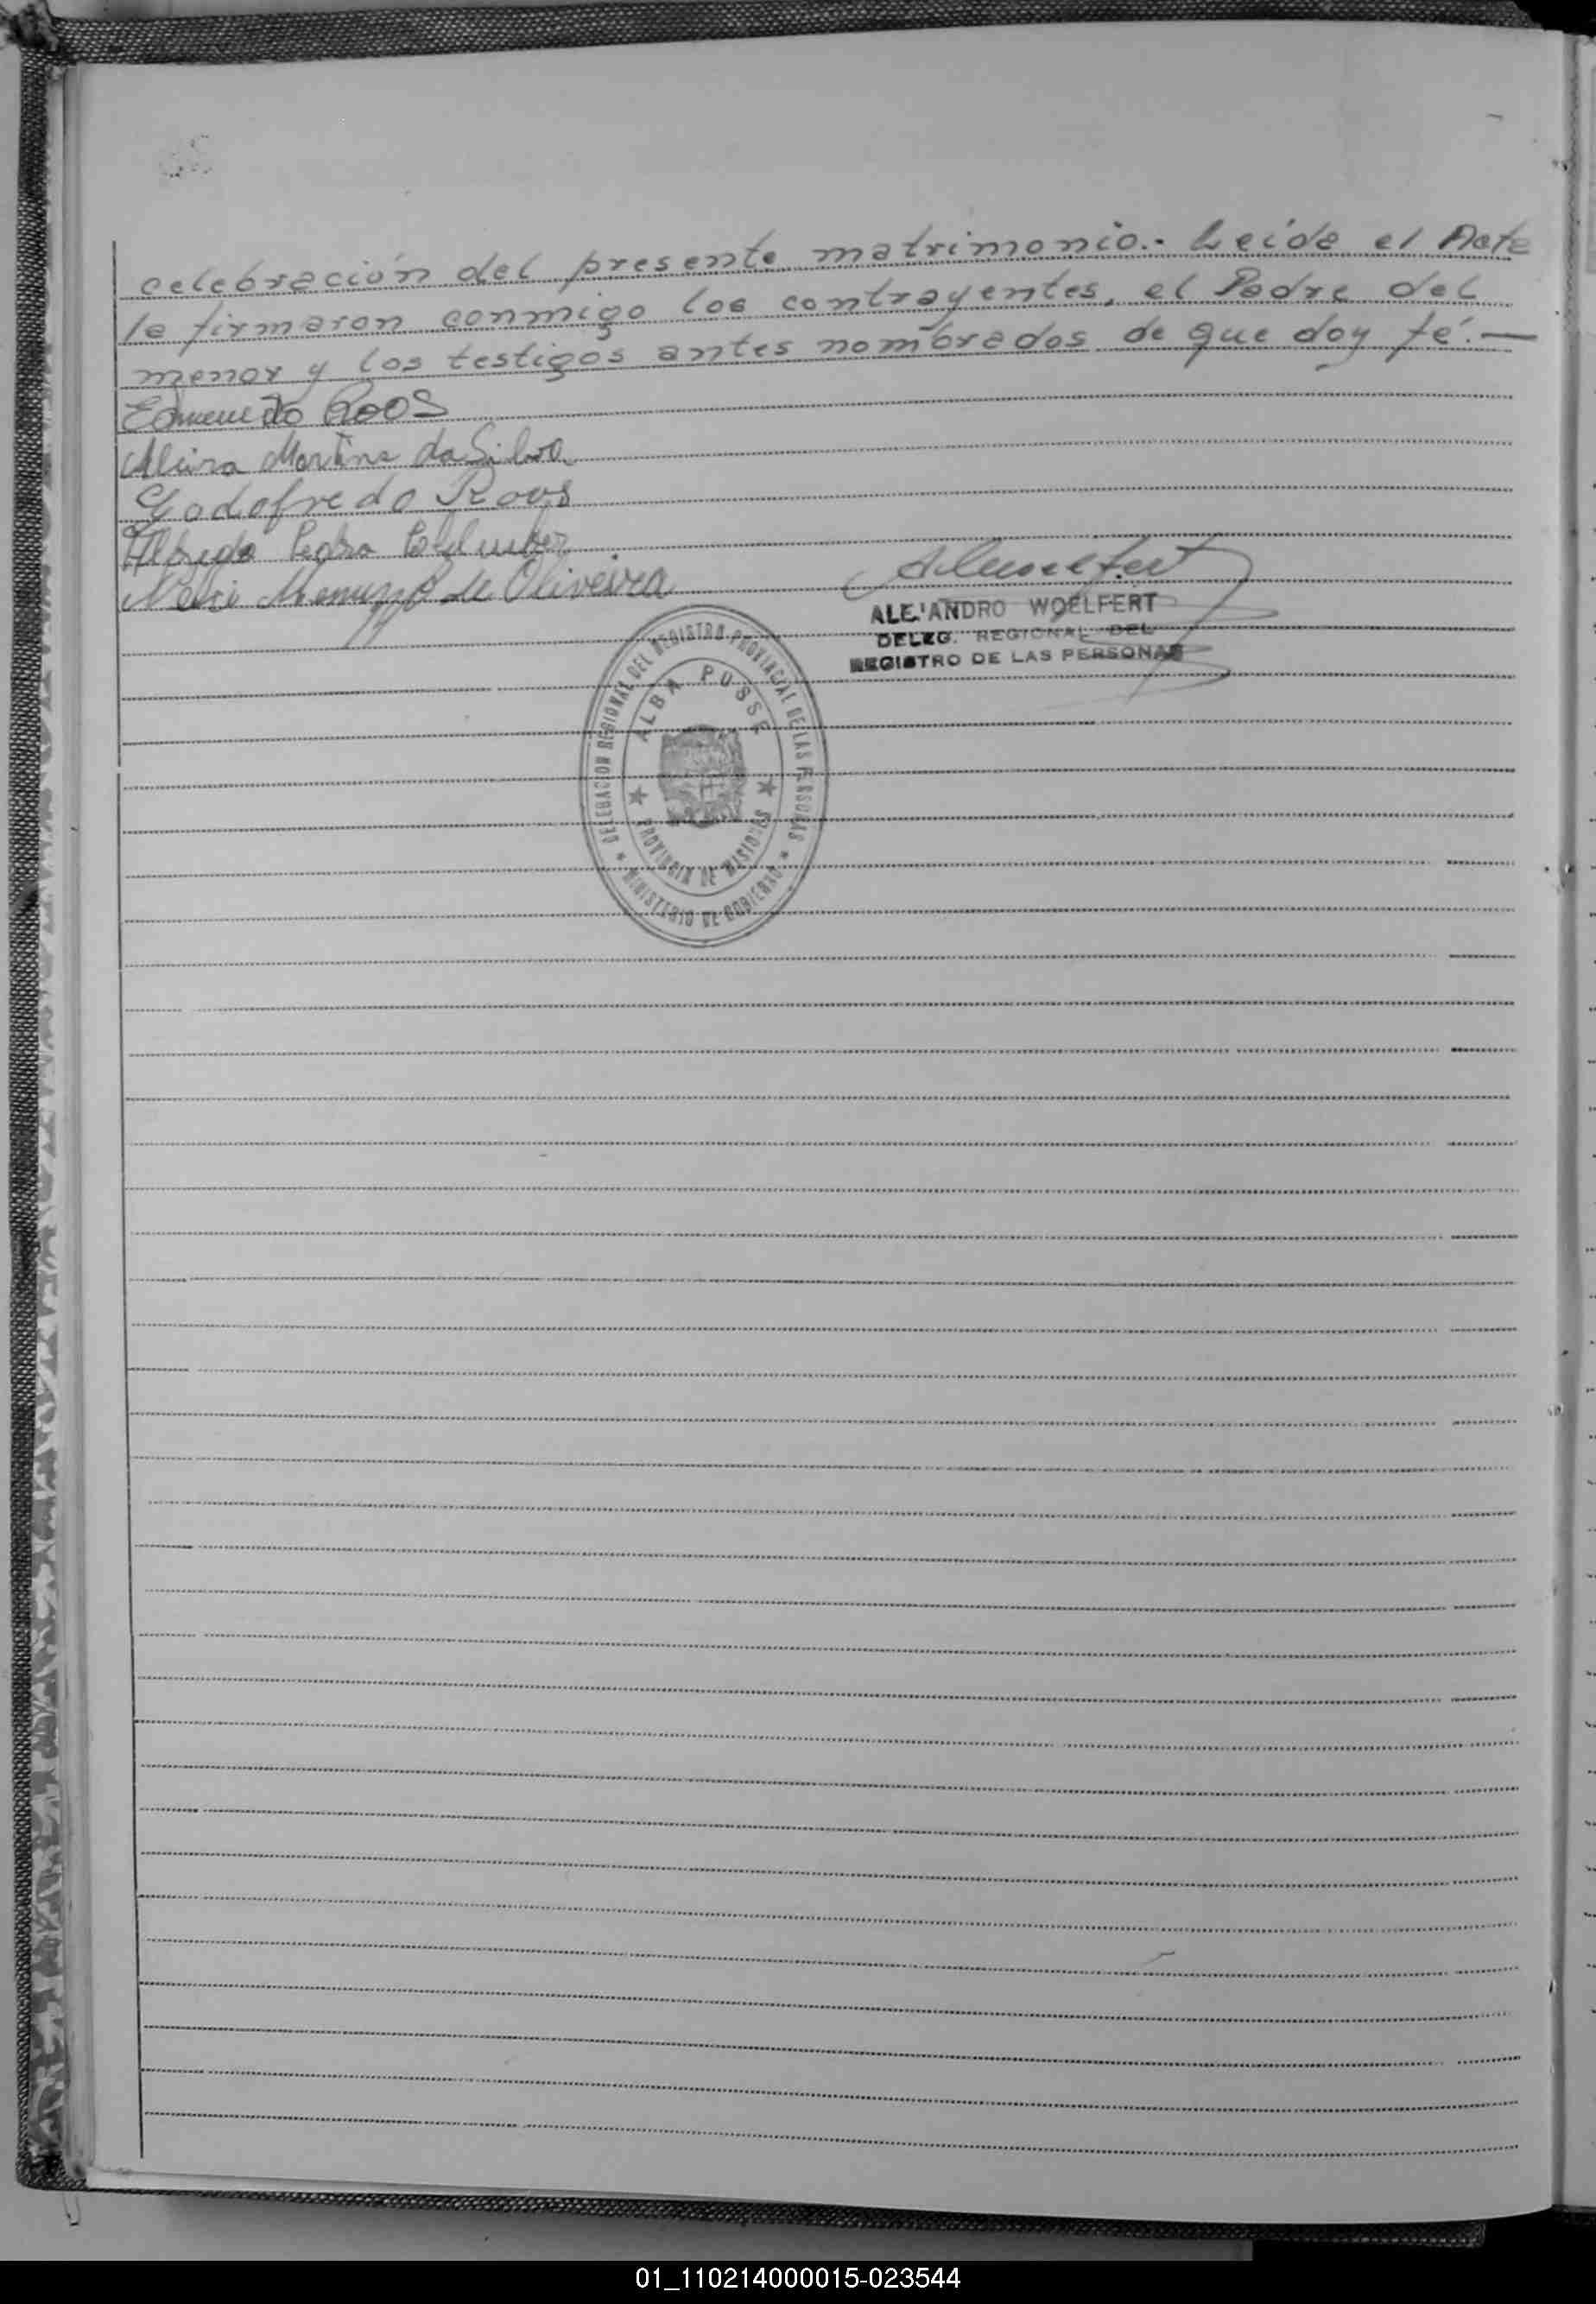 celebración del presente matrimonio.- Leída el Acta
la firmaron conmigo los contrayentes, el Padre del
menor y los testigos antes nombrados de que doy fé.—
Edmundo Roos
Martins da Silva
Godofredo Roos
Alfredo Pedro
de Oliveira
ALEJANDRO WOELFERT
DELEG. REGIONAL DEL
REGISTRO DE LAS PERSONAS
DELEGACION REGIONAL DEL REGISTRO PROVINCIAL DE LAS PERSONAS
ALBA POSSE
PROVINCIA DE MISIONES
MINISTERIO DE GOBIERNO
01_110214000015-023544